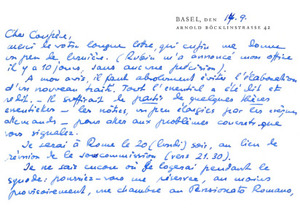 BASEL, DEN 14.9.
ARNOLD BÖCKLINSTRASSE 42
Cher Confrère,
merci de votre longue lettre, qui enfin me donne
un peu de lumière. (Rubin m'a annoncé mon offre
il y a 10 jours, sans aucune précision).
A mon avis, il faut absolument éviter l'élaboration
d'un nouveau traité. Tout l'essentiel a été dit et
redit. Il suffirait de partir de quelques thèses
existantes — les nôtres un peu élargies par les
allemands — pour obvier aux problèmes courrets que
vous signalez.
Je serai à Rome le 20 (lundi) soir, au lieu de
réunion de la souscommission (vers 21.30).
Je ne sais encore où je logerai pendant le
synode: pourriez-vous me réserver, au moins
provisoirement, une chambre au Pensionato Romano,